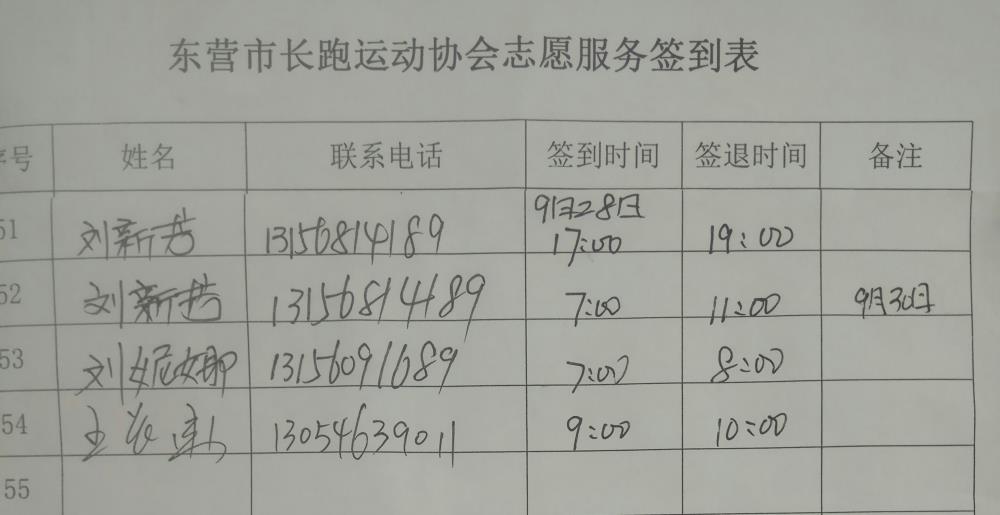 东营市长跑运动协会志愿服务签到表
序号 姓名 联系电话 签到时间 签退时间 备注
51 刘新 13156814189 9月28日 17:00 19:00
52 刘新 13156814189 7:00 11:00 9月30日
53 刘妮娜 13156091689 7:00 8:00
54 王 13054639011 9:00 10:00
55